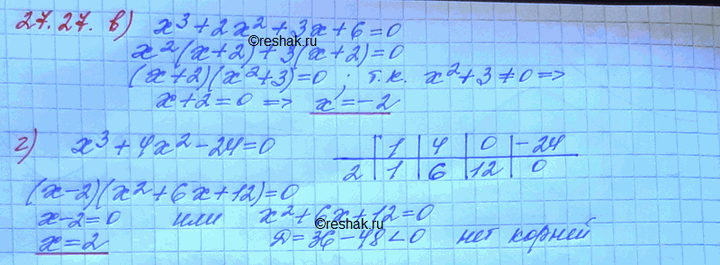 27.27. в) x³+2x²+3x+6=0
©reshak.ru
x²(x+2)+3(x+2)=0
(x+2)(x²+3)=0, т.к. x²+3≠0 =>
x+2=0 => x=-2
г) x³+4x²-24=0
1 4 0 -24
2 1 6 12 0
(x-2)(x²+6x+12)=0
x-2=0 или x²+6x+12=0
©reshak.ru
x=2 Д=36-48<0 нет корней